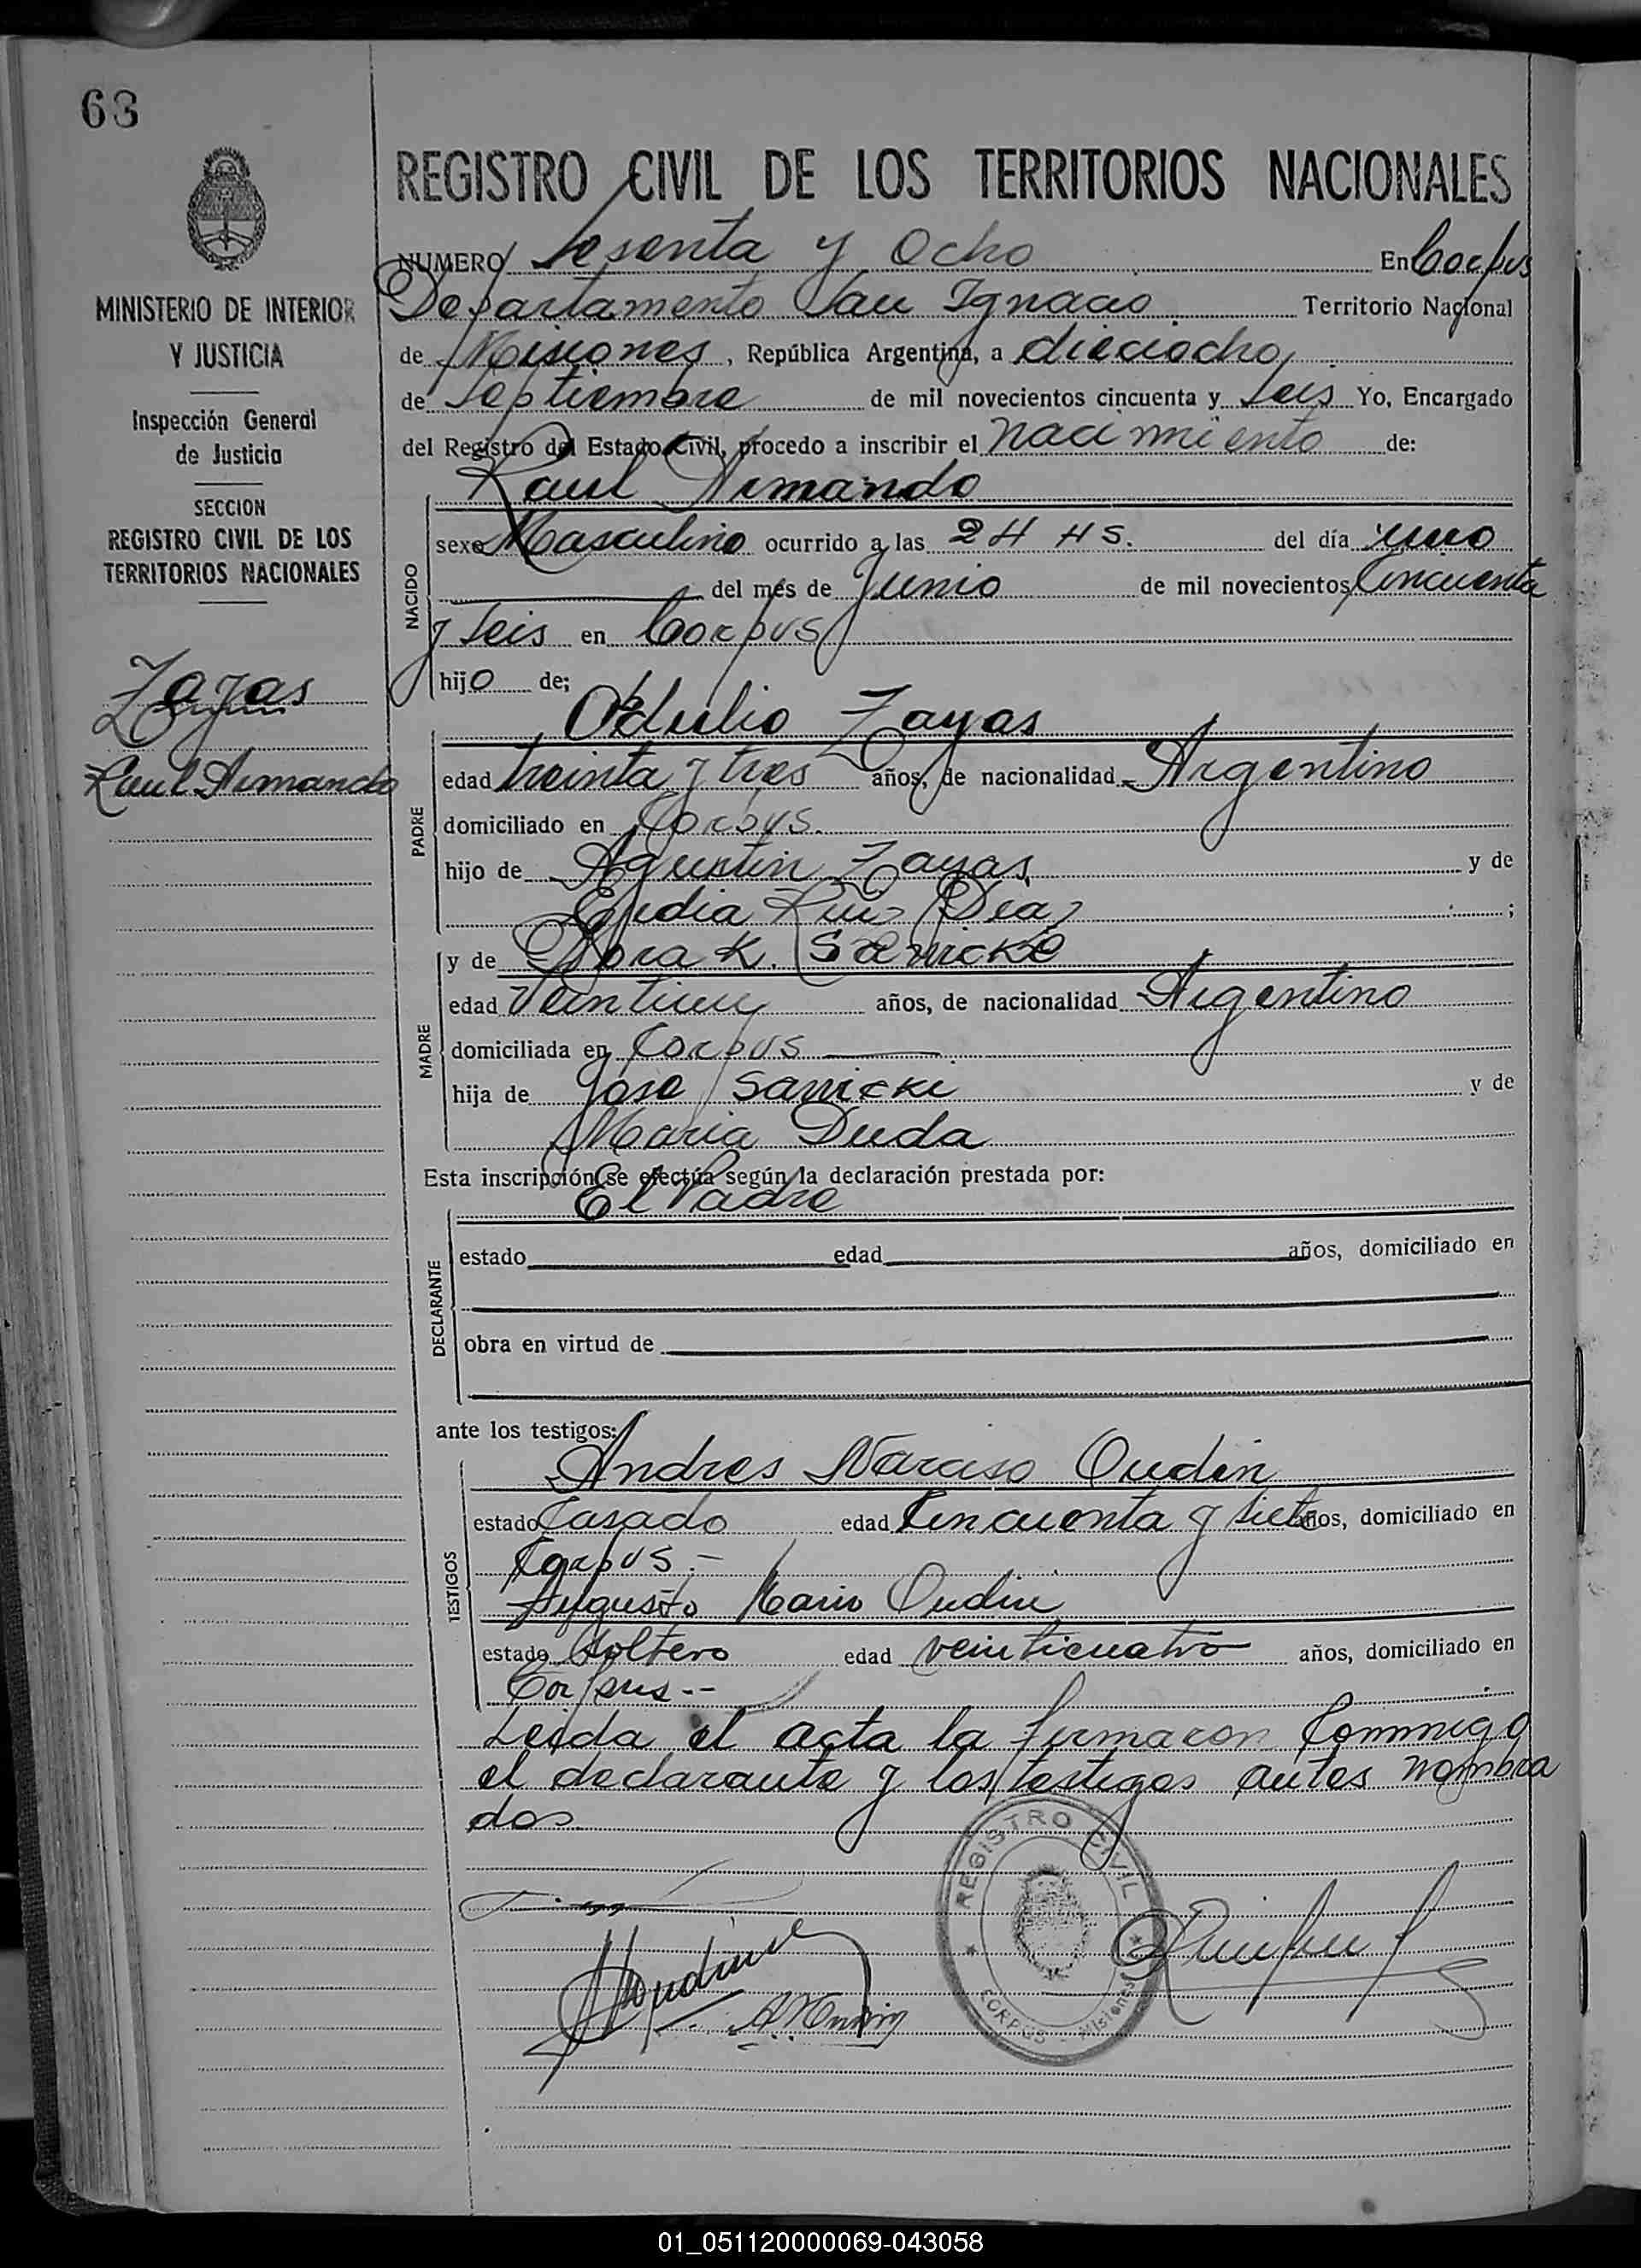 68
MINISTERIO DE INTERIOR
Y JUSTICIA
Inspección General
de Justicia
SECCION
REGISTRO CIVIL DE LOS
TERRITORIOS NACIONALES
Zayas
Raul Armando
REGISTRO CIVIL DE LOS TERRITORIOS NACIONALES
NUMERO Sesenta y Ocho En Corpus
Departamento San Ignacio Territorio Nacional
de Misiones, República Argentina, a dieciocho
de Septiembre de mil novecientos cincuenta y Seis Yo, Encargado
del Registro del Estado Civil, procedo a inscribir el nacimiento de:
Raul Armando
NACIDO
sexo Masculino ocurrido a las 24 HS. del día uno
del mes de Junio de mil novecientos Cincuenta
y Seis en Corpus
hijo de;
PADRE
Odulio Zayas
edad treinta y tres años, de nacionalidad Argentino
domiciliado en Corpus.
hijo de Agustin Zayas y de
Ruiz Diaz ;
MADRE
y de Dora K. Sawicke
edad Veintiun años, de nacionalidad Argentino
domiciliada en Corpus
hija de Jose Sawicki y de
Maria Duda
Esta inscripción se efectúa según la declaración prestada por:
El Padre
DECLARANTE
estado edad años, domiciliado en
obra en virtud de
ante los testigos:
TESTIGOS
Andres Narciso Oudin
estado Casado edad Cincuenta y siete años, domiciliado en
Corpus.-
Augusto Mario Oudin
estado Soltero edad veinticuatro años, domiciliado en
Corpus.--
Leida el acta la firmaron Commigo
el declarante y los testigos antes nombra
dos.
REGISTRO CIVIL
CORPUS - Misiones
01_051120000069-043058